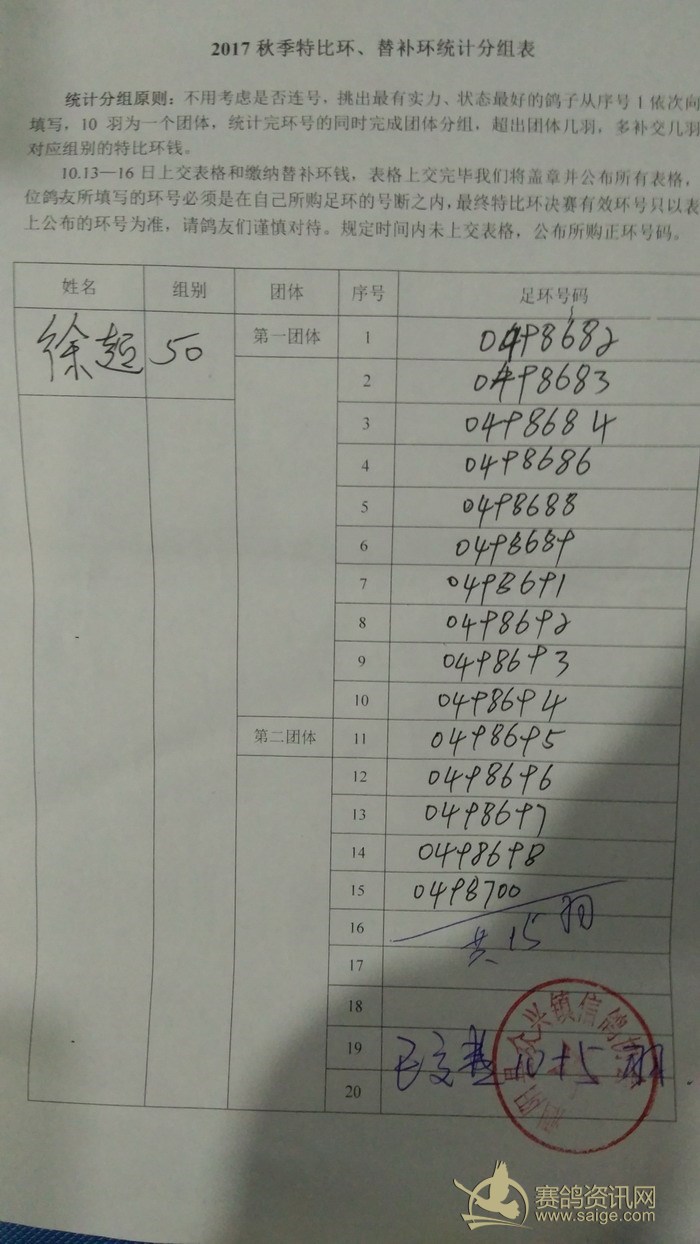 2017 秋季特比环、替补环统计分组表
统计分组原则：不用考虑是否连号，挑出最有实力、状态最好的鸽子从序号 1 依次向
填写，10 羽为一个团体，统计完环号的同时完成团体分组，超出团体几羽，多补交几羽
对应组别的特比环钱。
10.13—16 日上交表格和缴纳替补环钱，表格上交完毕我们将盖章并公布所有表格，
位鸽友所填写的环号必须是在自己所购足环的号断之内，最终特比环决赛有效环号只以表
上公布的环号为准，请鸽友们谨慎对待。规定时间内未上交表格，公布所购正环号码。
姓名 组别 团体 序号 足环号码
徐超 50 第一团体 1 0498682
2 0498683
3 0498684
4 0498686
5 0498688
6 0498689
7 0498691
8 0498692
9 0498693
10 0498694
第二团体 11 0498695
12 0498696
13 0498697
14 0498698
15 0498700
16 共15羽
17
18
19 已交
20
兴镇信鸽
赛鸽资讯网
www.saige.com